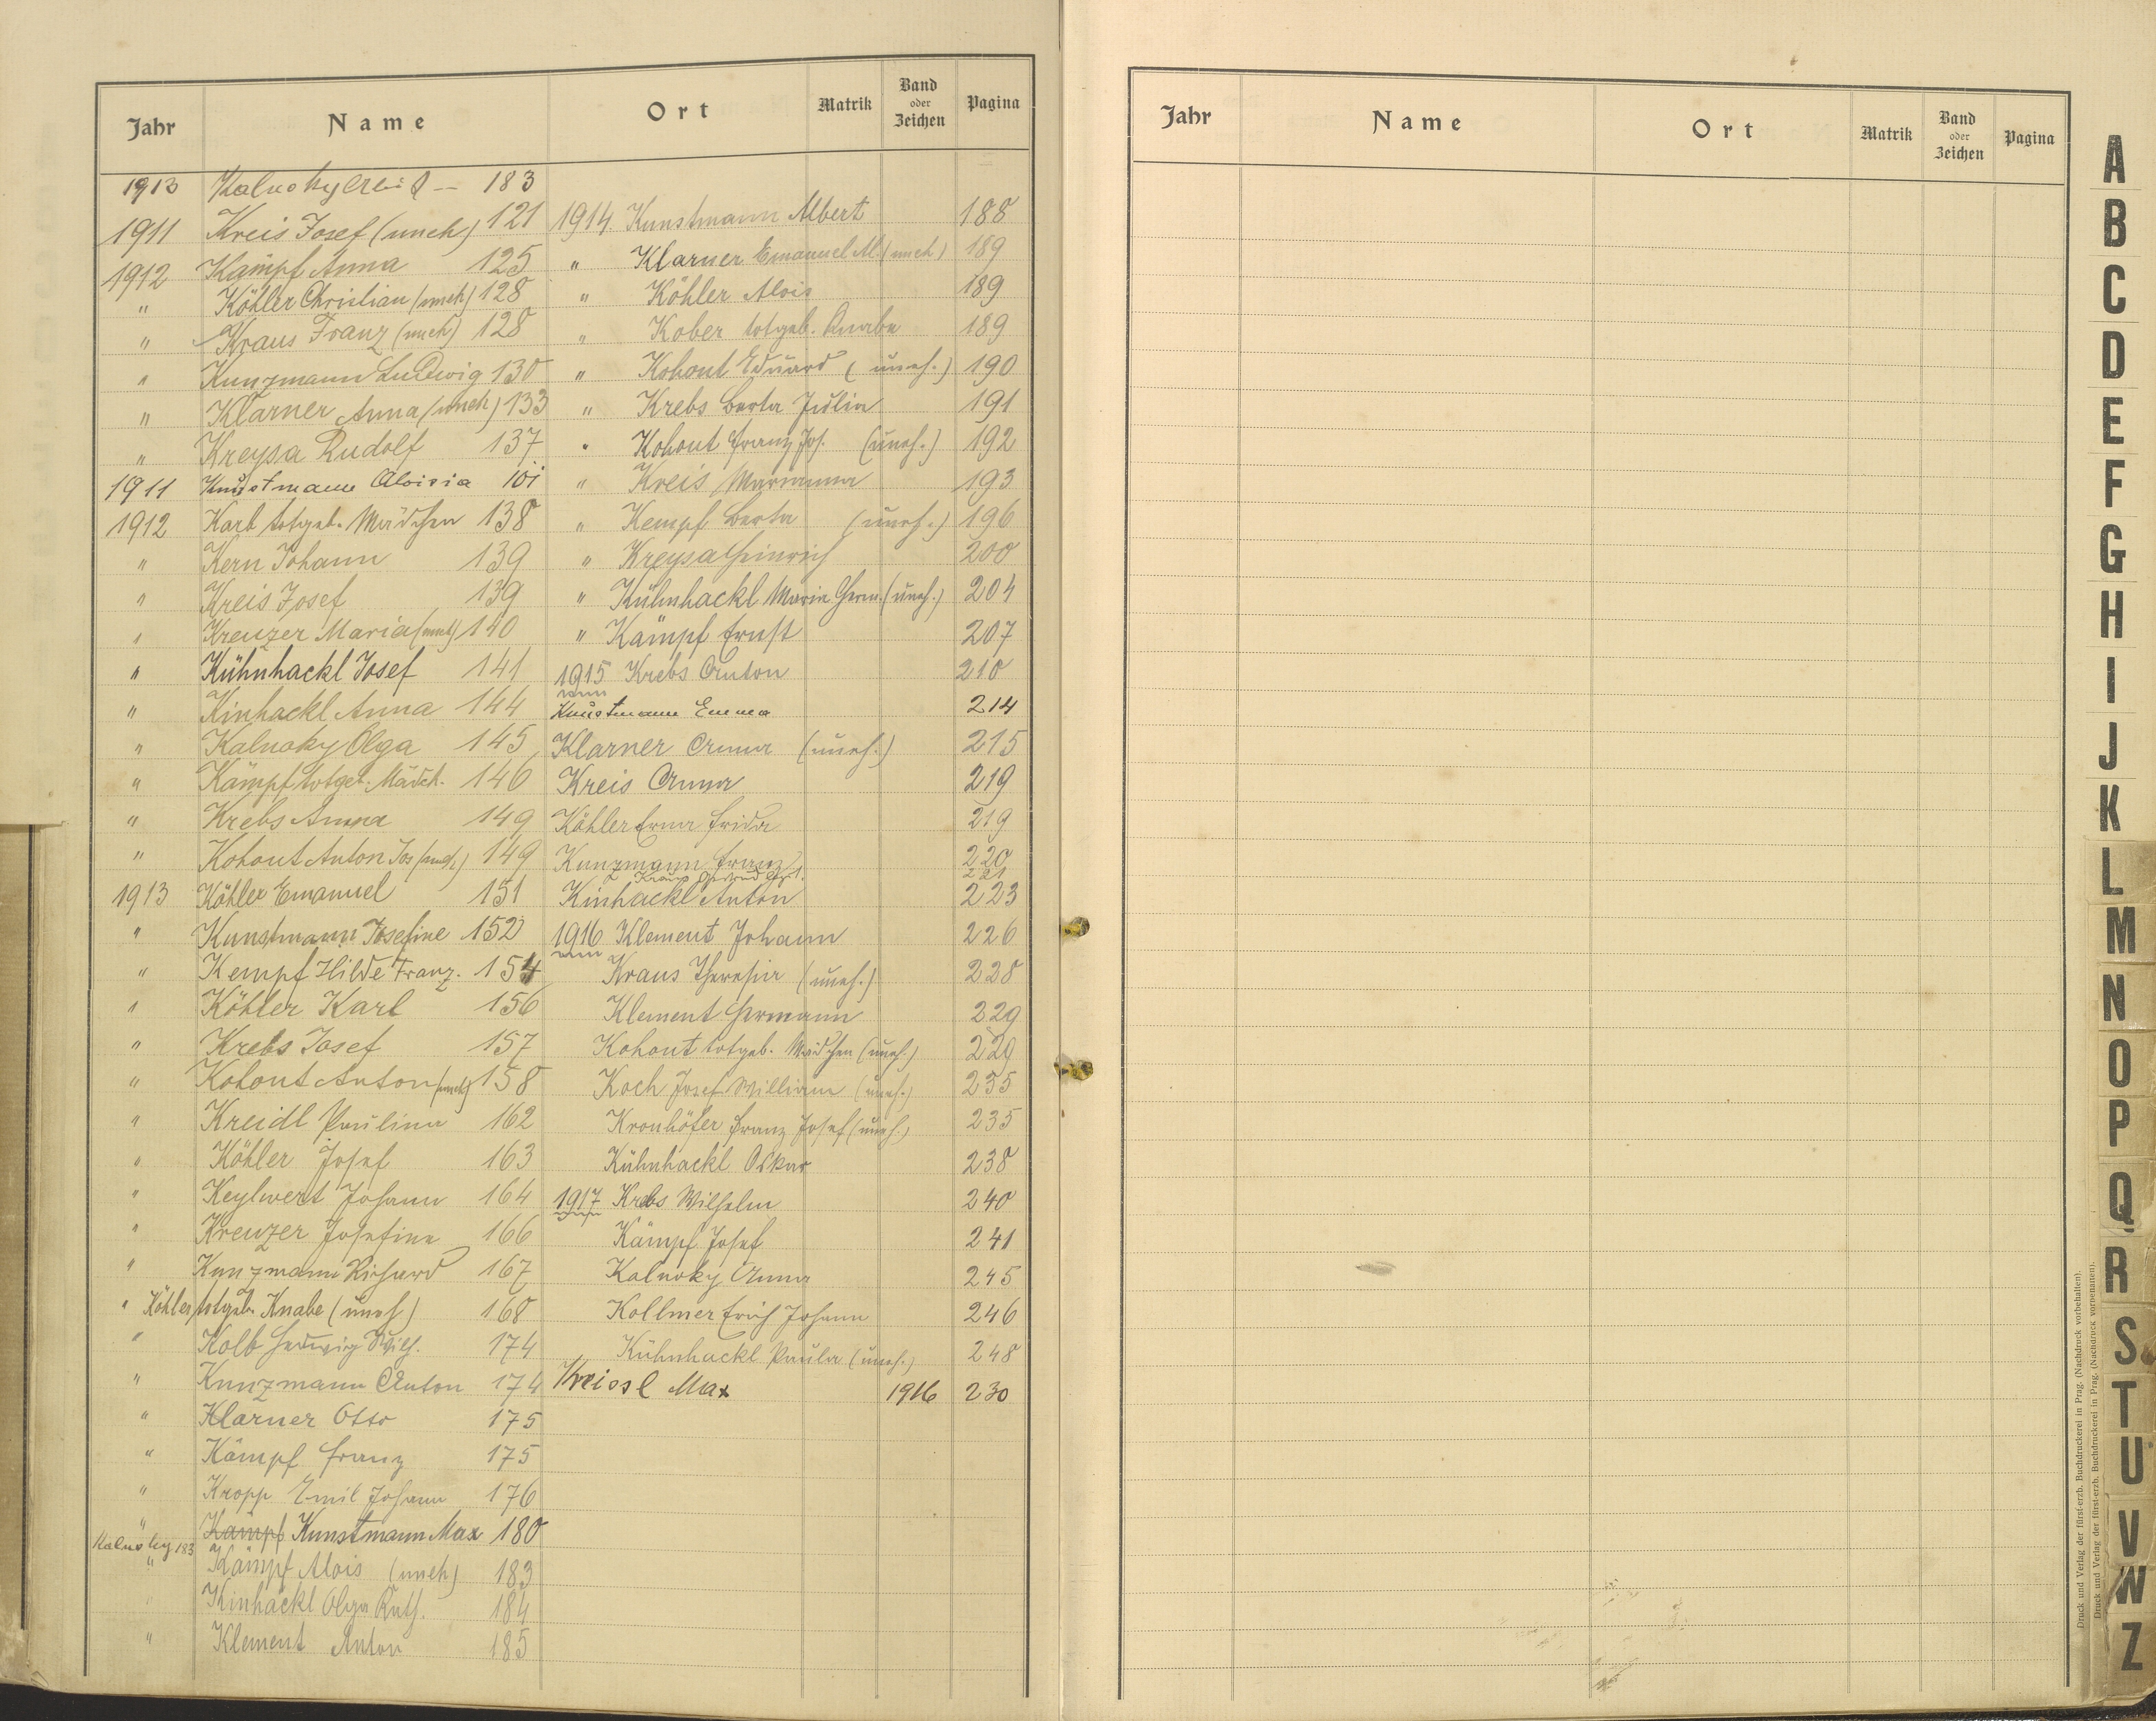 Jahr Name Ort Matrik Band oder Zeichen Pagina
1913 Kalnoky 183
1911 Kreis Josef (uneh) 121
1912 Kämpf Anna 125
" Köhler Christian (uneh) 128
" Kraus Franz (uneh) 128
" Kunzmann Ludwig 130
" Klarner Anna (uneh) 133
" Kreysa Rudolf 137
1911 Kunstmann Aloisia 101
1912 Karb totgeb. Mädchen 138
" Kern Johann 139
" Kreis Josef 139
" Kreuzer Maria (uneh) 140
" Kühnhackl Josef 141
" Kinhackl Anna 144
" Kalnoky Olga 145
" Kämpf totgeb. Mädch. 146
" Krebs Anna 149
" Kohout Anton Jos (uneh.) 149
1913 Köhler Emanuel 151
" Kunstmann Josefine 152
" Kempf Hilde Franz. 154
" Köhler Karl 156
" Krebs Josef 157
" Kohout Anton (uneh) 158
" Kreidl Paulina 162
" Köhler Josef 163
" Keylwert Johann 164
" Kreuzer Josefine 166
" Kunzmann Richard 167
" Köhler totgeb. Knabe (uneh) 168
" Kolb Hedwig Wilh. 174
" Kunzmann Anton 174
" Klarner Otto 175
" Kämpf Franz 175
" Kropp Emil Johann 176
" Kämpf Kunstmann Max 180
Kalnoky 183
" Kämpf Alois (uneh) 183
Kinhackl Olga Ruth. 184
" Klement Anton 185
1914 Kunstmann Albert 188
" Klarner Emanuel Al. (uneh) 189
" Köhler Alois 189
" Kober totgeb. Knabe 189
" Kohout Eduard (uneh.) 190
" Krebs Berta Julia 191
" Kohout Franz Jos. (uneh.) 192
" Kreis Marianna 193
" Kempf Berta (uneh.) 196
" Kreysa Heinrich 200
" Kühnhackl Maria Herm. (uneh.) 204
" Kämpf Ernst 207
1915 Krebs Anton 210
Kunstmann Emma 214
Klarner Anna (uneh.) 215
Kreis Anna 219
Köhler Erna Frida 219
Kunzmann Franz 220
Kraus 221
Kinhackl Anton 223
1916 Klement Johann 226
Kraus Theresia (uneh.) 228
Klement Hermann 229
Kohout totgeb. Mädchen (uneh.) 229
Koch Josef William (uneh.) 235
Kronhöfer Franz Josef (uneh.) 235
Kühnhackl Oskar 238
1917 Krebs Wilhelm 240
Kämpf Josef 241
Kalnoky Anna 245
Kollmer Erich Johann 246
Kühnhackl Paula (uneh.) 248
Kreissl Max 1916 230
Jahr Name Ort Matrik Band oder Zeichen Pagina
Druck und Verlag der fürst-erzb. Buchdruckerei in Prag. (Nachdruck vorbehalten).
Druck und Verlag der fürst-erzb. Buchdruckerei in Prag. (Nachdruck vorbehalten).
A
B
C
D
E
F
G
H
I
J
K
L
M
N
O
P
Q
R
S
T
U
V
W
Z